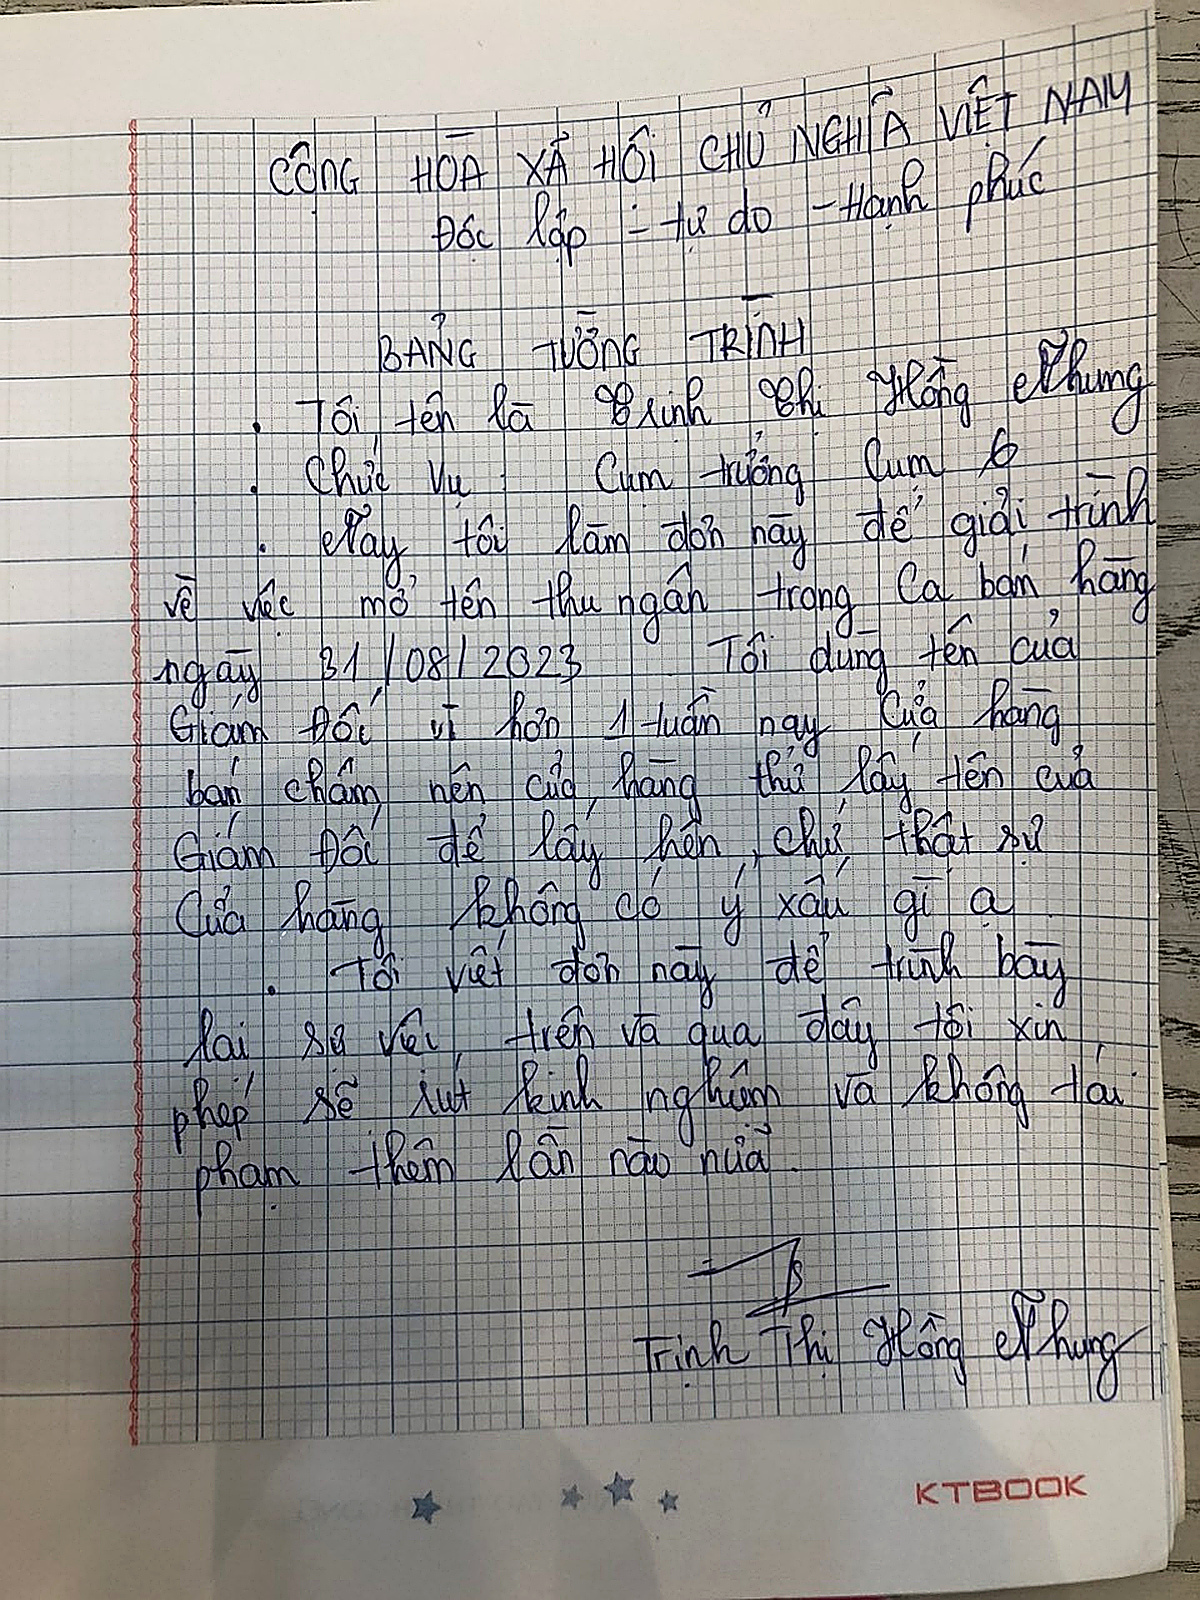 CỘNG HÒA XÃ HỘI CHỦ NGHĨA VIỆT NAM
Độc lập - tự do - Hạnh phúc
BẢNG TƯỜNG TRÌNH
. Tôi tên là Trịnh Thị Hồng Nhung
. Chức vụ : Cụm trưởng Cụm 6
. Nay tôi làm đơn này để giải trình
về việc mở tên thu ngân trong Ca bán hàng
ngày 31/08/2023 Tôi dùng tên của
Giám Đốc vì hơn 1 tuần nay Cửa hàng
bán chậm nên cửa hàng thử lấy tên của
Giám Đốc để lấy hên, chứ thật sự
Cửa hàng không có ý xấu gì ạ
. Tôi viết đơn này để trình bày
lại sự việc trên và qua đây tôi xin
phép sẽ rút kinh nghiệm và không tái
phạm thêm lần nào nữa.
Trịnh Thị Hồng Nhung
KTBOOK